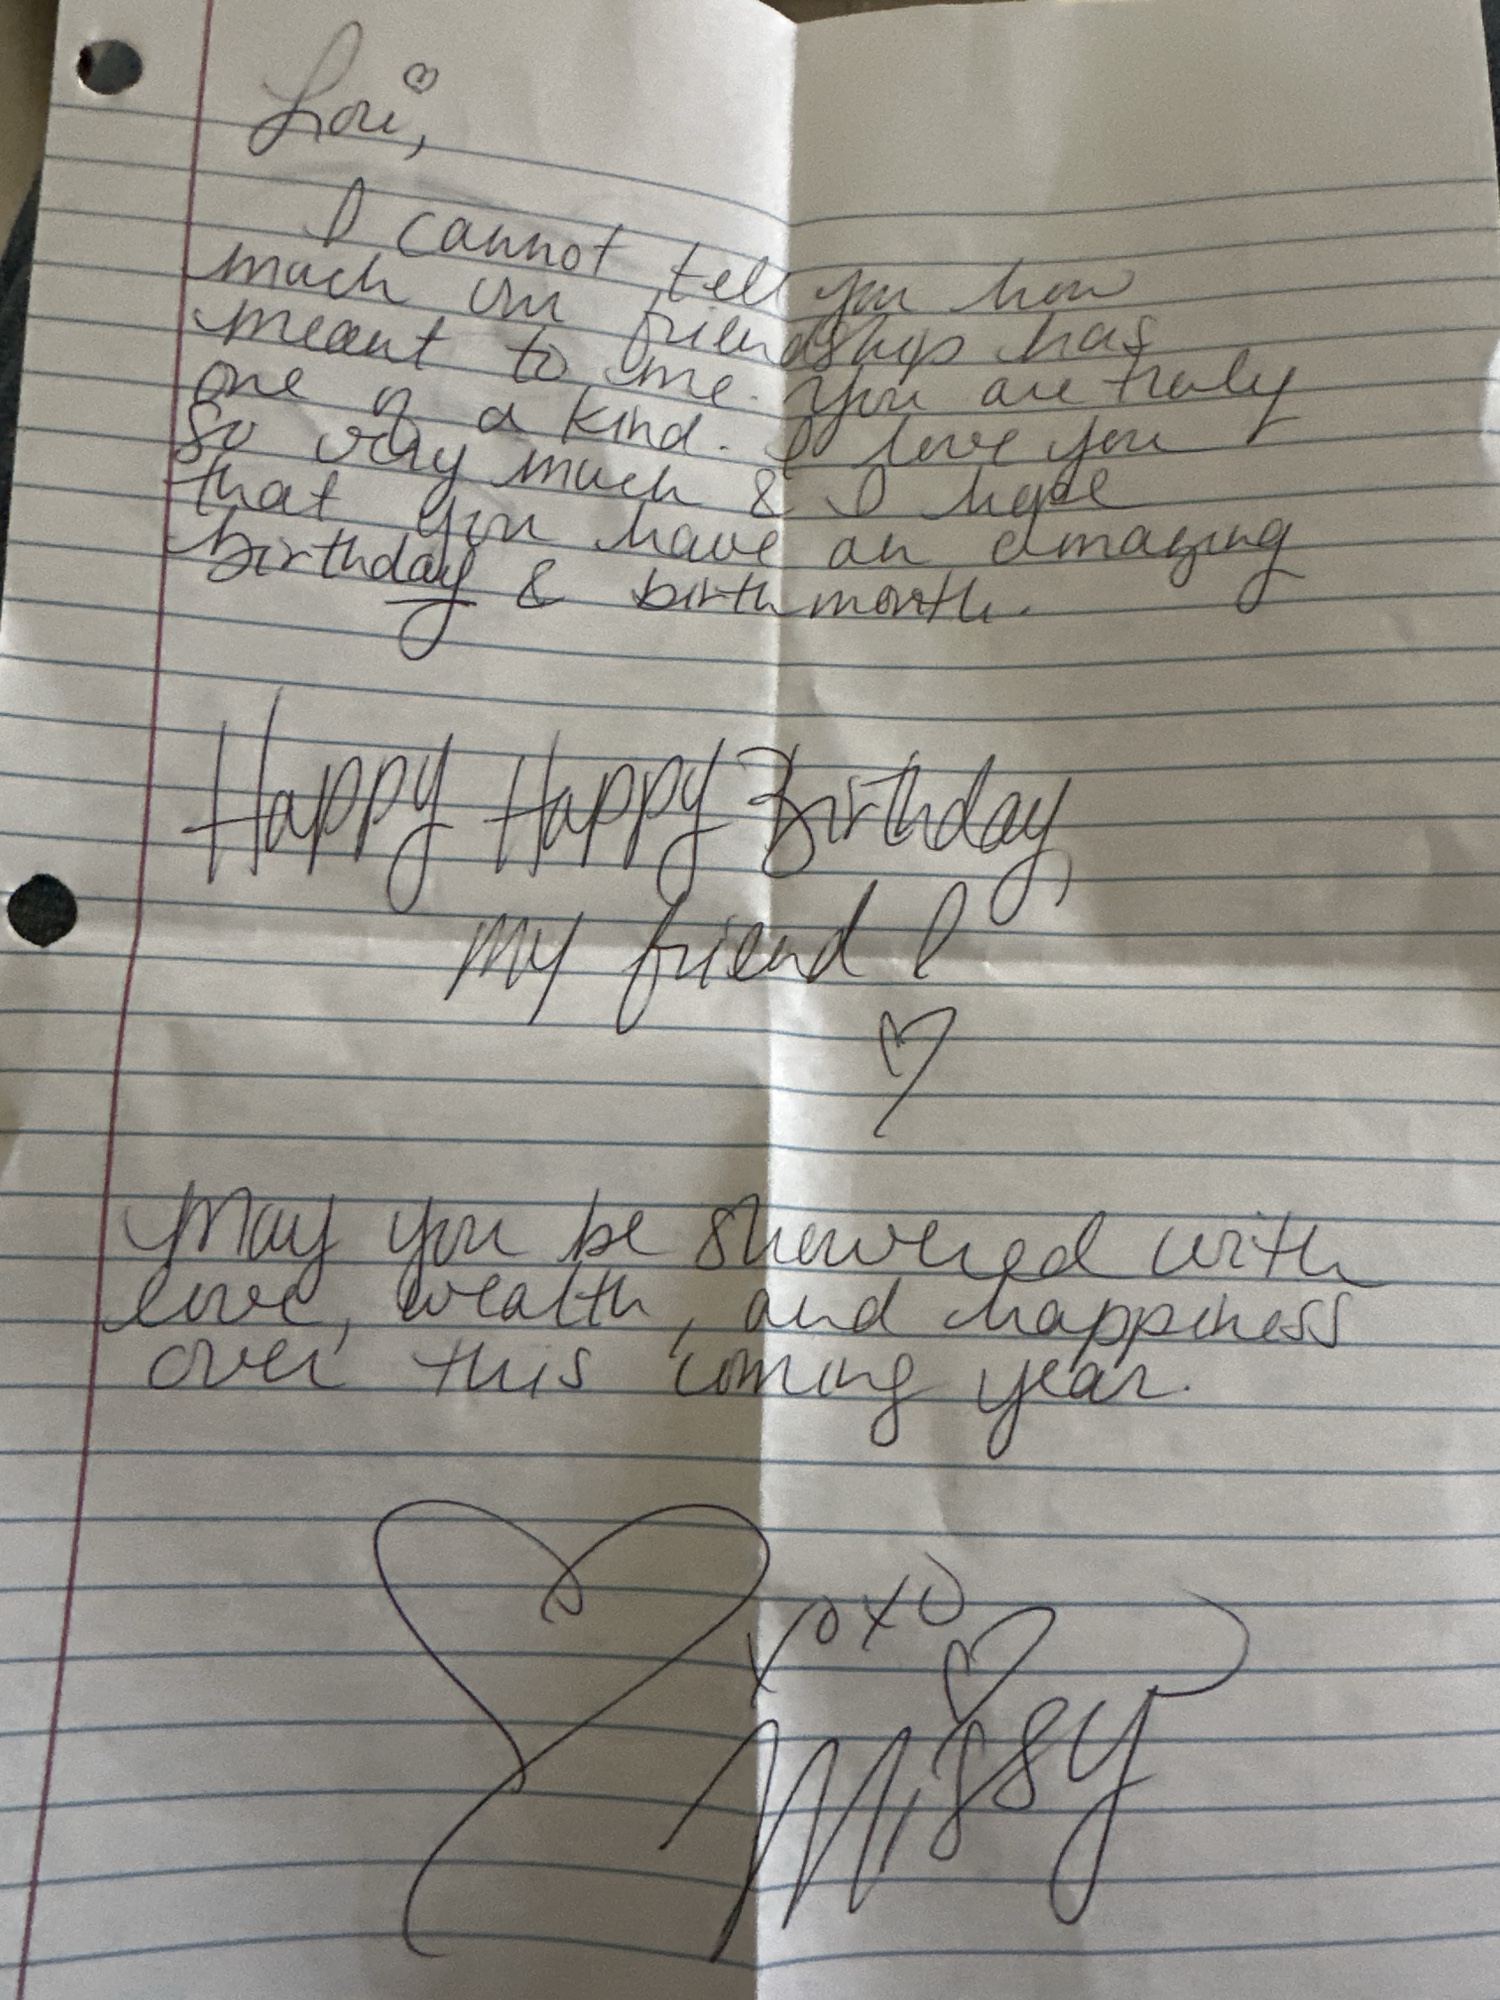 Lori,
I cannot tell you how
much our friendship has
meant to me. You are truly
one of a kind. I love you
so very much & I hope
that you have an amazing
birthday & birthmonth.
Happy Happy Birthday,
my friend!
May you be showered with
love, wealth, and happiness
over this coming year.
xoxo
Missy